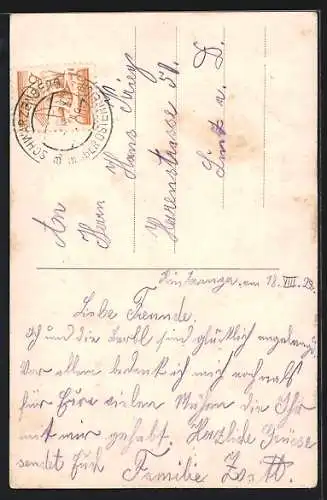 SCHWARZENBERG
OBERÖSTERREICH
An
Herrn Hans
Herrenstrasse 50.
Linz a. D.
am 18. VIII. 29.
Liebe Freunde.
Ich und die Berbl sind glücklich angelangt.
Vor allem bedank ich mich nochmals
für Eure vielen Mühen die Ihr
mit mir gehabt. Herzliche Grüsse
sendet Euch Familie